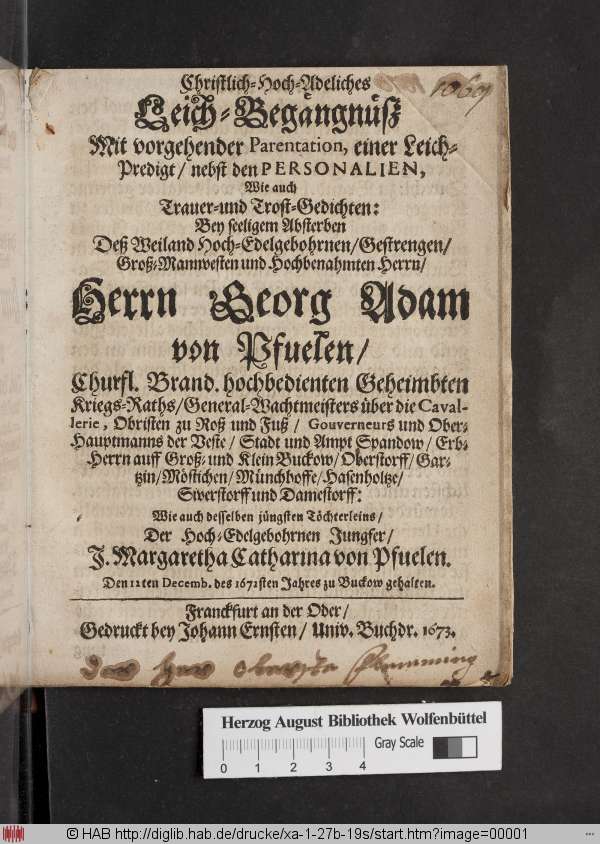 1069
Christlich-Hoch-Adeliches
Leich-Begängnüß
Mit vorgehender Parentation, einer Leich-
Predigt/ nebst den PERSONALIEN,
Wie auch
Trauer-und Trost-Gedichten:
Bey seeligem Absterben
Deß Weiland Hoch-Edelgebohrnen/Gestrengen/
Groß-Mannvesten und Hochbenahmten Herrn/
Herrn Georg Adam
von Pfuelen/
Churfl. Brand. hochbedienten Geheimbten
Kriegs-Raths/General-Wachtmeisters über die Caval-
lerie, Obristen zu Roß und Fuß/ Gouverneurs und Ober-
Hauptmanns der Veste/ Stadt und Ampt Spandow/ Erb-
Herrn auff Groß- und Klein Buckow/ Oberstorff/ Gar-
tzin/Möstichen/ Münchhoffe/ Hasenholtze/
Siverstorff und Damestorff:
Wie auch desselben jüngsten Töchterleins/
Der Hoch-Edelgebohrnen Jungfer/
J. Margaretha Catharina von Pfuelen.
Den 12ten Decemb. des 1671sten Jahres zu Buckow gehalten.
Franckfurt an der Oder/
Gedruckt bey Johann Ernsten/ Univ. Buchdr. 1673.
Der Herr Oberste Flemming
Herzog August Bibliothek Wolfenbüttel
Gray Scale
0 1 2 3 4
© HAB http://diglib.hab.de/drucke/xa-1-27b-19s/start.htm?image=00001